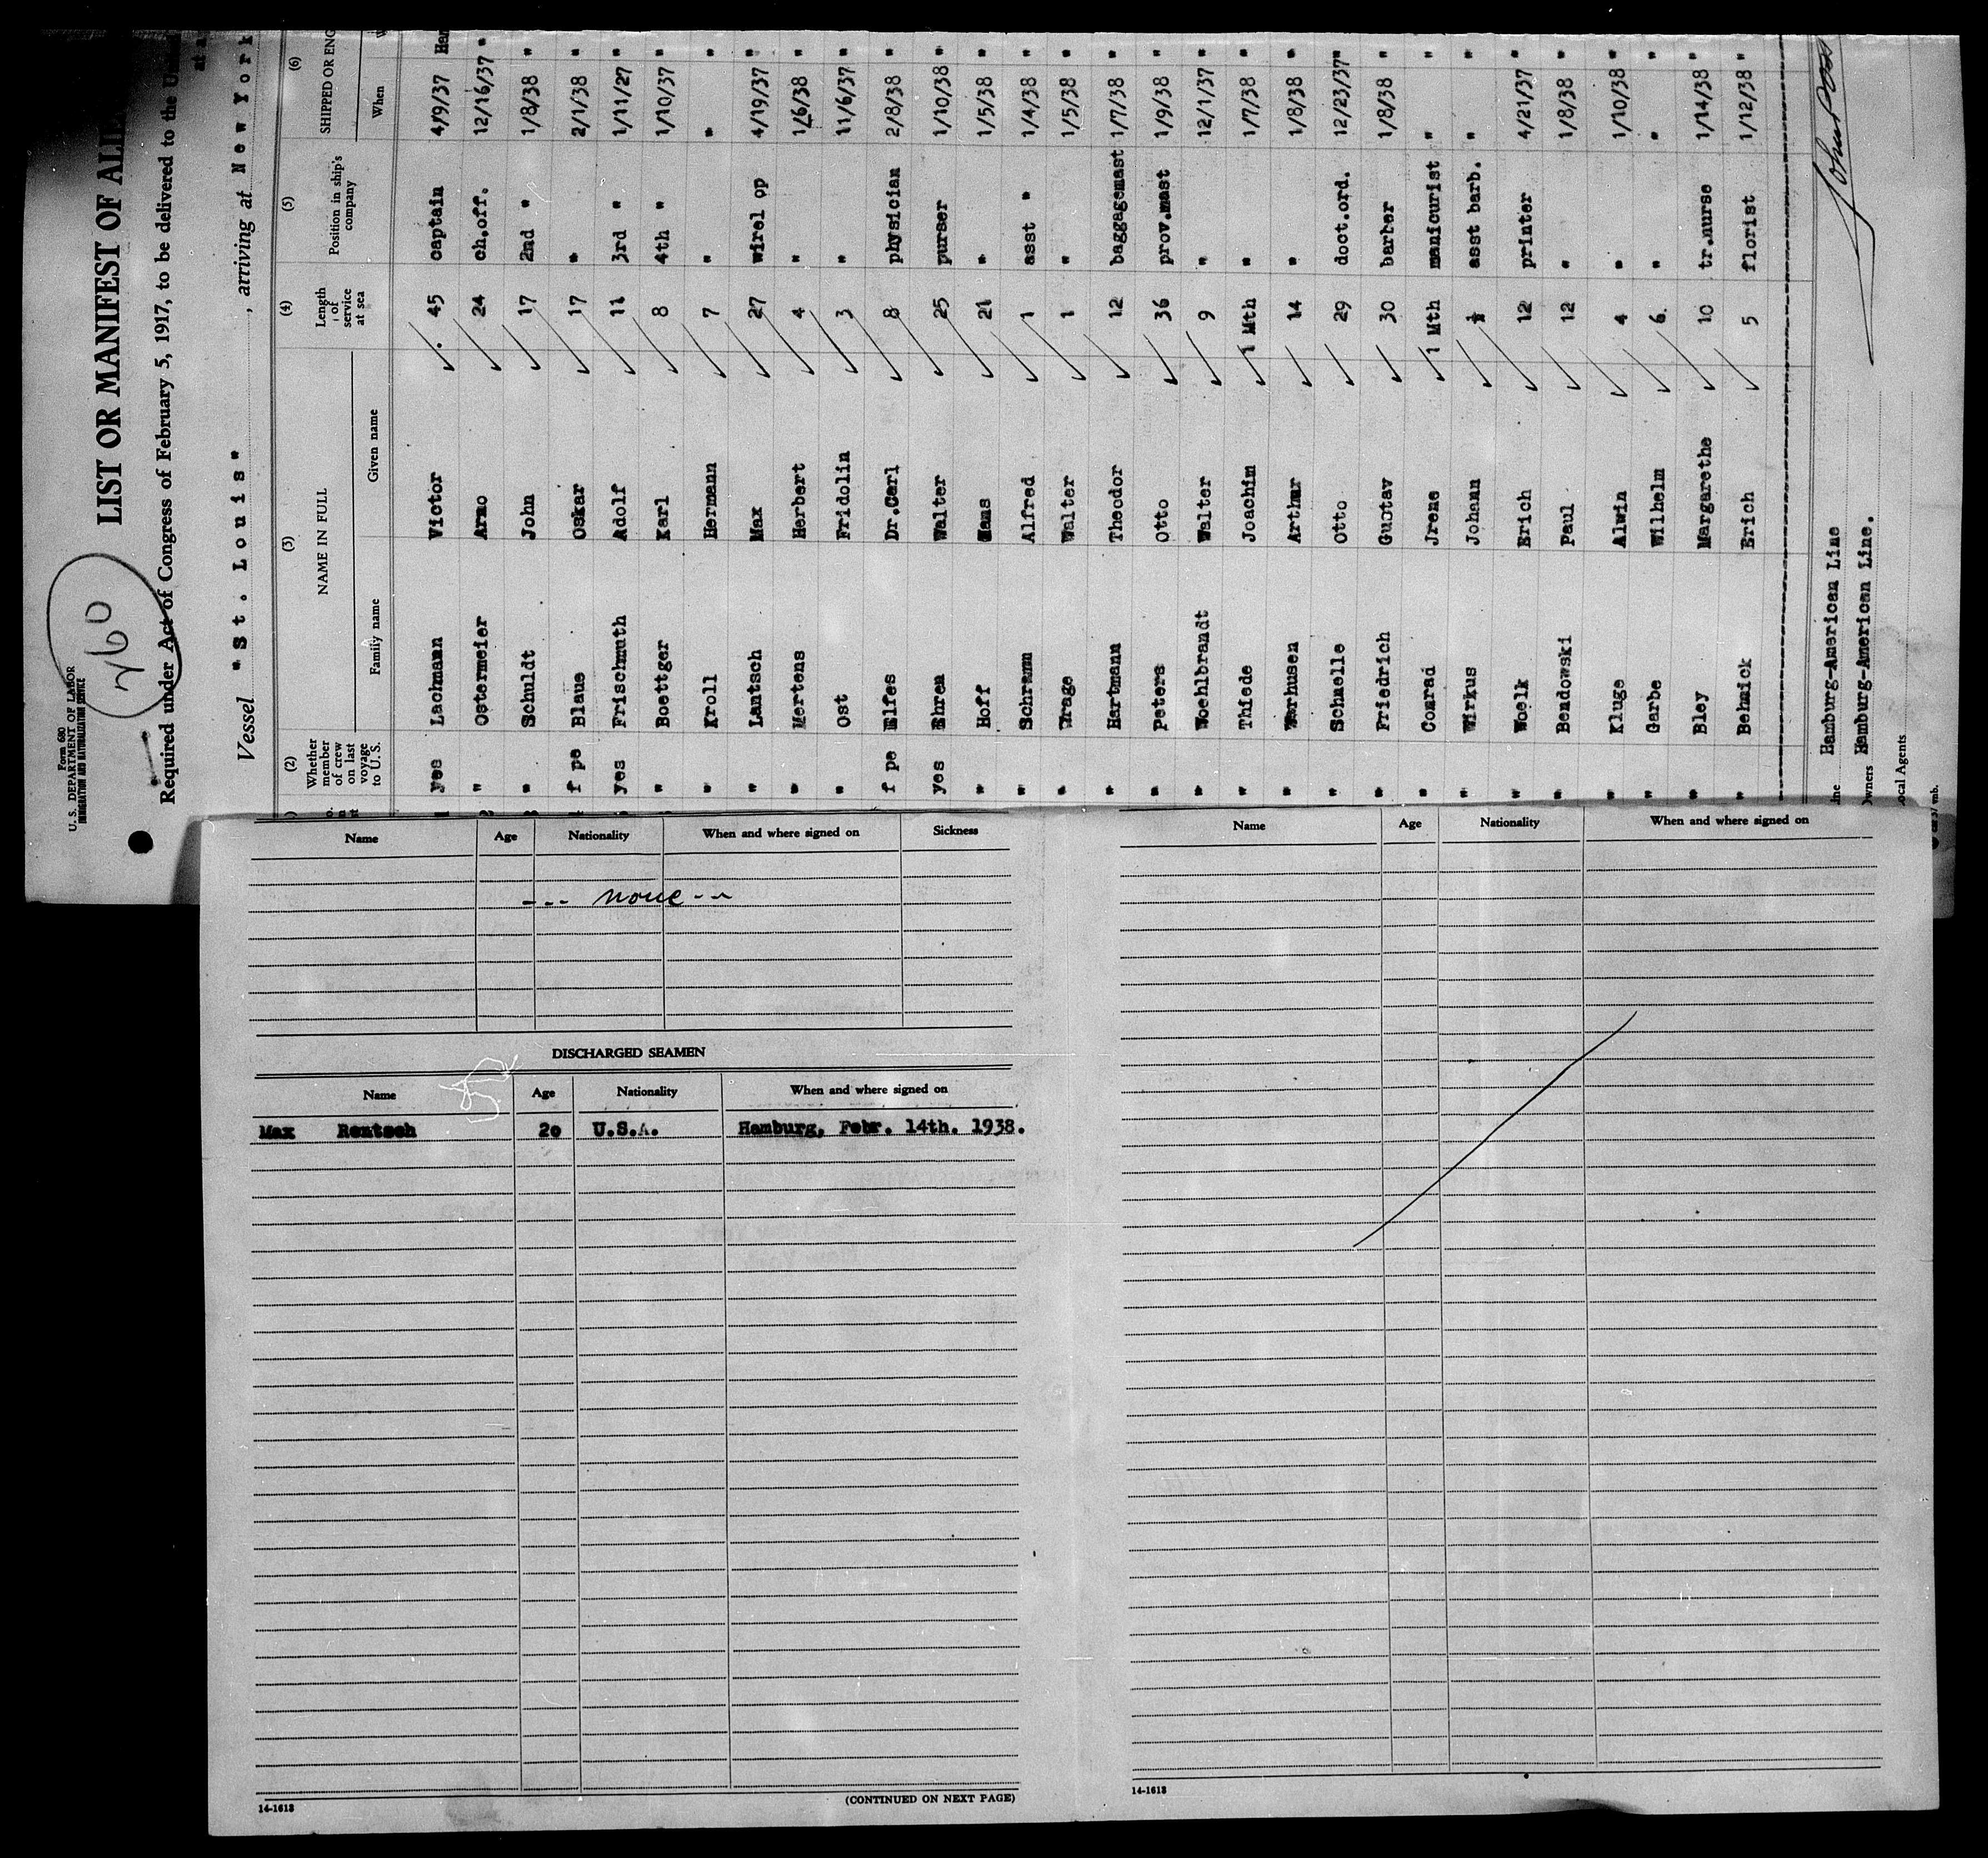 Form 680
U. S. DEPARTMENT OF LABOR
IMMIGRATION AND NATURALIZATION SERVICE
260
LIST OR MANIFEST OF
Required under Act of Congress of February 5, 1917, to be delivered to the
Vessel "St. Louis", arriving at New York
(2) (3) (4) (5) (6)
Whether member of crew on last voyage to U. S. NAME IN FULL Length of service at sea Position in ship's company SHIPPED OR ENG
Family name Given name When
yes Lachmann Victor 45 captain 4/9/37 Ham
" Ostermeier Arno 24 ch.off. 12/16/37 "
" Schuldt John 17 2nd " 1/8/38 "
f pe Blaue Oskar 17 " 2/1/38 "
yes Frischmuth Adolf 11 3rd " 1/11/27 "
" Boettger Karl 8 4th " 1/10/37 "
" Kroll Hermann 7 " " "
" Lantsch Max 27 wirel op 4/19/37 "
" Mertens Herbert 4 " 1/6/38 "
" Ost Fridolin 3 " 11/6/37 "
f pe Elfes Dr.Carl 8 physician 2/8/38 "
yes Ehren Walter 25 purser 1/10/38 "
" Hoff Hans 21 " 1/5/38 "
" Schramm Alfred 1 asst " 1/4/38 "
" Drage Walter 1 " 1/5/38 "
" Hartmann Theodor 12 baggagemast 1/7/38 "
" Peters Otto 36 prov.mast 1/9/38 "
" Woehlbrandt Walter 9 " 12/1/37 "
" Thiede Joachim 1 Mth " 1/7/38 "
" Warhusen Arthur 14 " 1/8/38 "
" Schnelle Otto 29 doct.ord. 12/23/37 "
" Friedrich Gustav 30 barber 1/8/38 "
" Conrad Jrene 1 Mth manicurist " "
" Wirkus Johann ½ asst barb. " "
" Woelk Erich 12 printer 4/21/37 "
" Bendowski Paul 12 " 1/8/38 "
" Kluge Alwin 4 " 1/10/38 "
" Garbe Wilhelm 6. " " "
" Bley Margarethe 10 tr.nurse 1/14/38 "
" Behmick Erich 5 florist 1/12/38 "
Line Hamburg-American Line
Owners Hamburg-American Line.
Local Agents
Name Age Nationality When and where signed on Sickness
--- none --
DISCHARGED SEAMEN
Name Age Nationality When and where signed on
Max Rentsch 20 U.S.A. Hamburg, Febr. 14th. 1938.
14-1613
(CONTINUED ON NEXT PAGE)
Name Age Nationality When and where signed on
14-1613